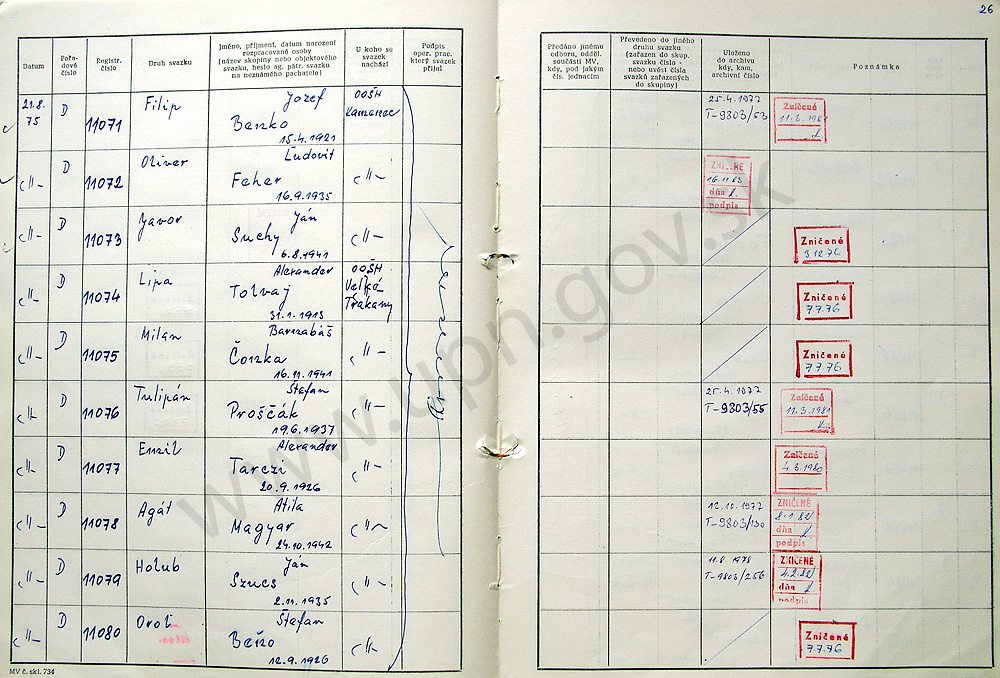 26
Datum
Pořa-
dové
číslo
Registr.
číslo
Druh svazku
Jméno, příjmení, datum narození
rozpracované osoby
(název skupiny nebo objektového
svazku, heslo ag. pátr. svazku
na neznámého pachatele)
U koho se
svazek
nachází
Podpis
oper. prac.
který svazek
přijal
Předáno jinému
odboru, odděl.
součásti MV,
kdy, pod jakým
čís. jednacím
Převedeno do jiného
druhu svazku
(zařazen do skup.
svazku číslo -
nebo uvést čísla
svazků zařazených
do skupiny)
Uloženo
do archivu
kdy, kam,
archivní číslo
Poznámka
21.8.
75
D
11071
Filip
Jozef
Benko
15.4.1921
OOŠH
Kamenec
25.4.1977
T-9803/53
Zničené
-11-
D
11072
Oliver
Ľudovít
Feher
16.9.1935
-11-
ZNIČENÉ
16.11.83
dňa
podpis
-11-
D
11073
Javor
Ján
Suchy
6.8.1941
-11-
Zničené
3.12.76
-11-
D
11074
Lipa
Alexander
Tolvaj
31.1.1913
OOŠH
Veľké
Trakany
Zničené
7.7.76
-11-
D
11075
Milan
Barnabáš
Čonka
16.11.1941
-11-
Zničené
7.7.76
-11-
D
11076
Tulipán
Štefan
Proščák
19.6.1937
-11-
25.4.1977
T-9803/55
Zničené
11.3.1981
-11-
D
11077
Emil
Alexander
Tarczi
20.9.1926
-11-
Zničené
4.3.1980
-11-
D
11078
Agát
Atila
Magyar
24.10.1942
-11-
12.10.1977
T-9803/130
ZNIČENÉ
8.1.82
dňa
podpis
-11-
D
11079
Holub
Ján
Szucs
2.11.1935
-11-
11.8.1978
T-9803/256
ZNIČENÉ
4.2.82
dňa
podpis
-11-
D
11080
Orol
Štefan
12.9.1926
-11-
Zničené
7.7.76
MV č. skl. 734
www.upn.gov.sk